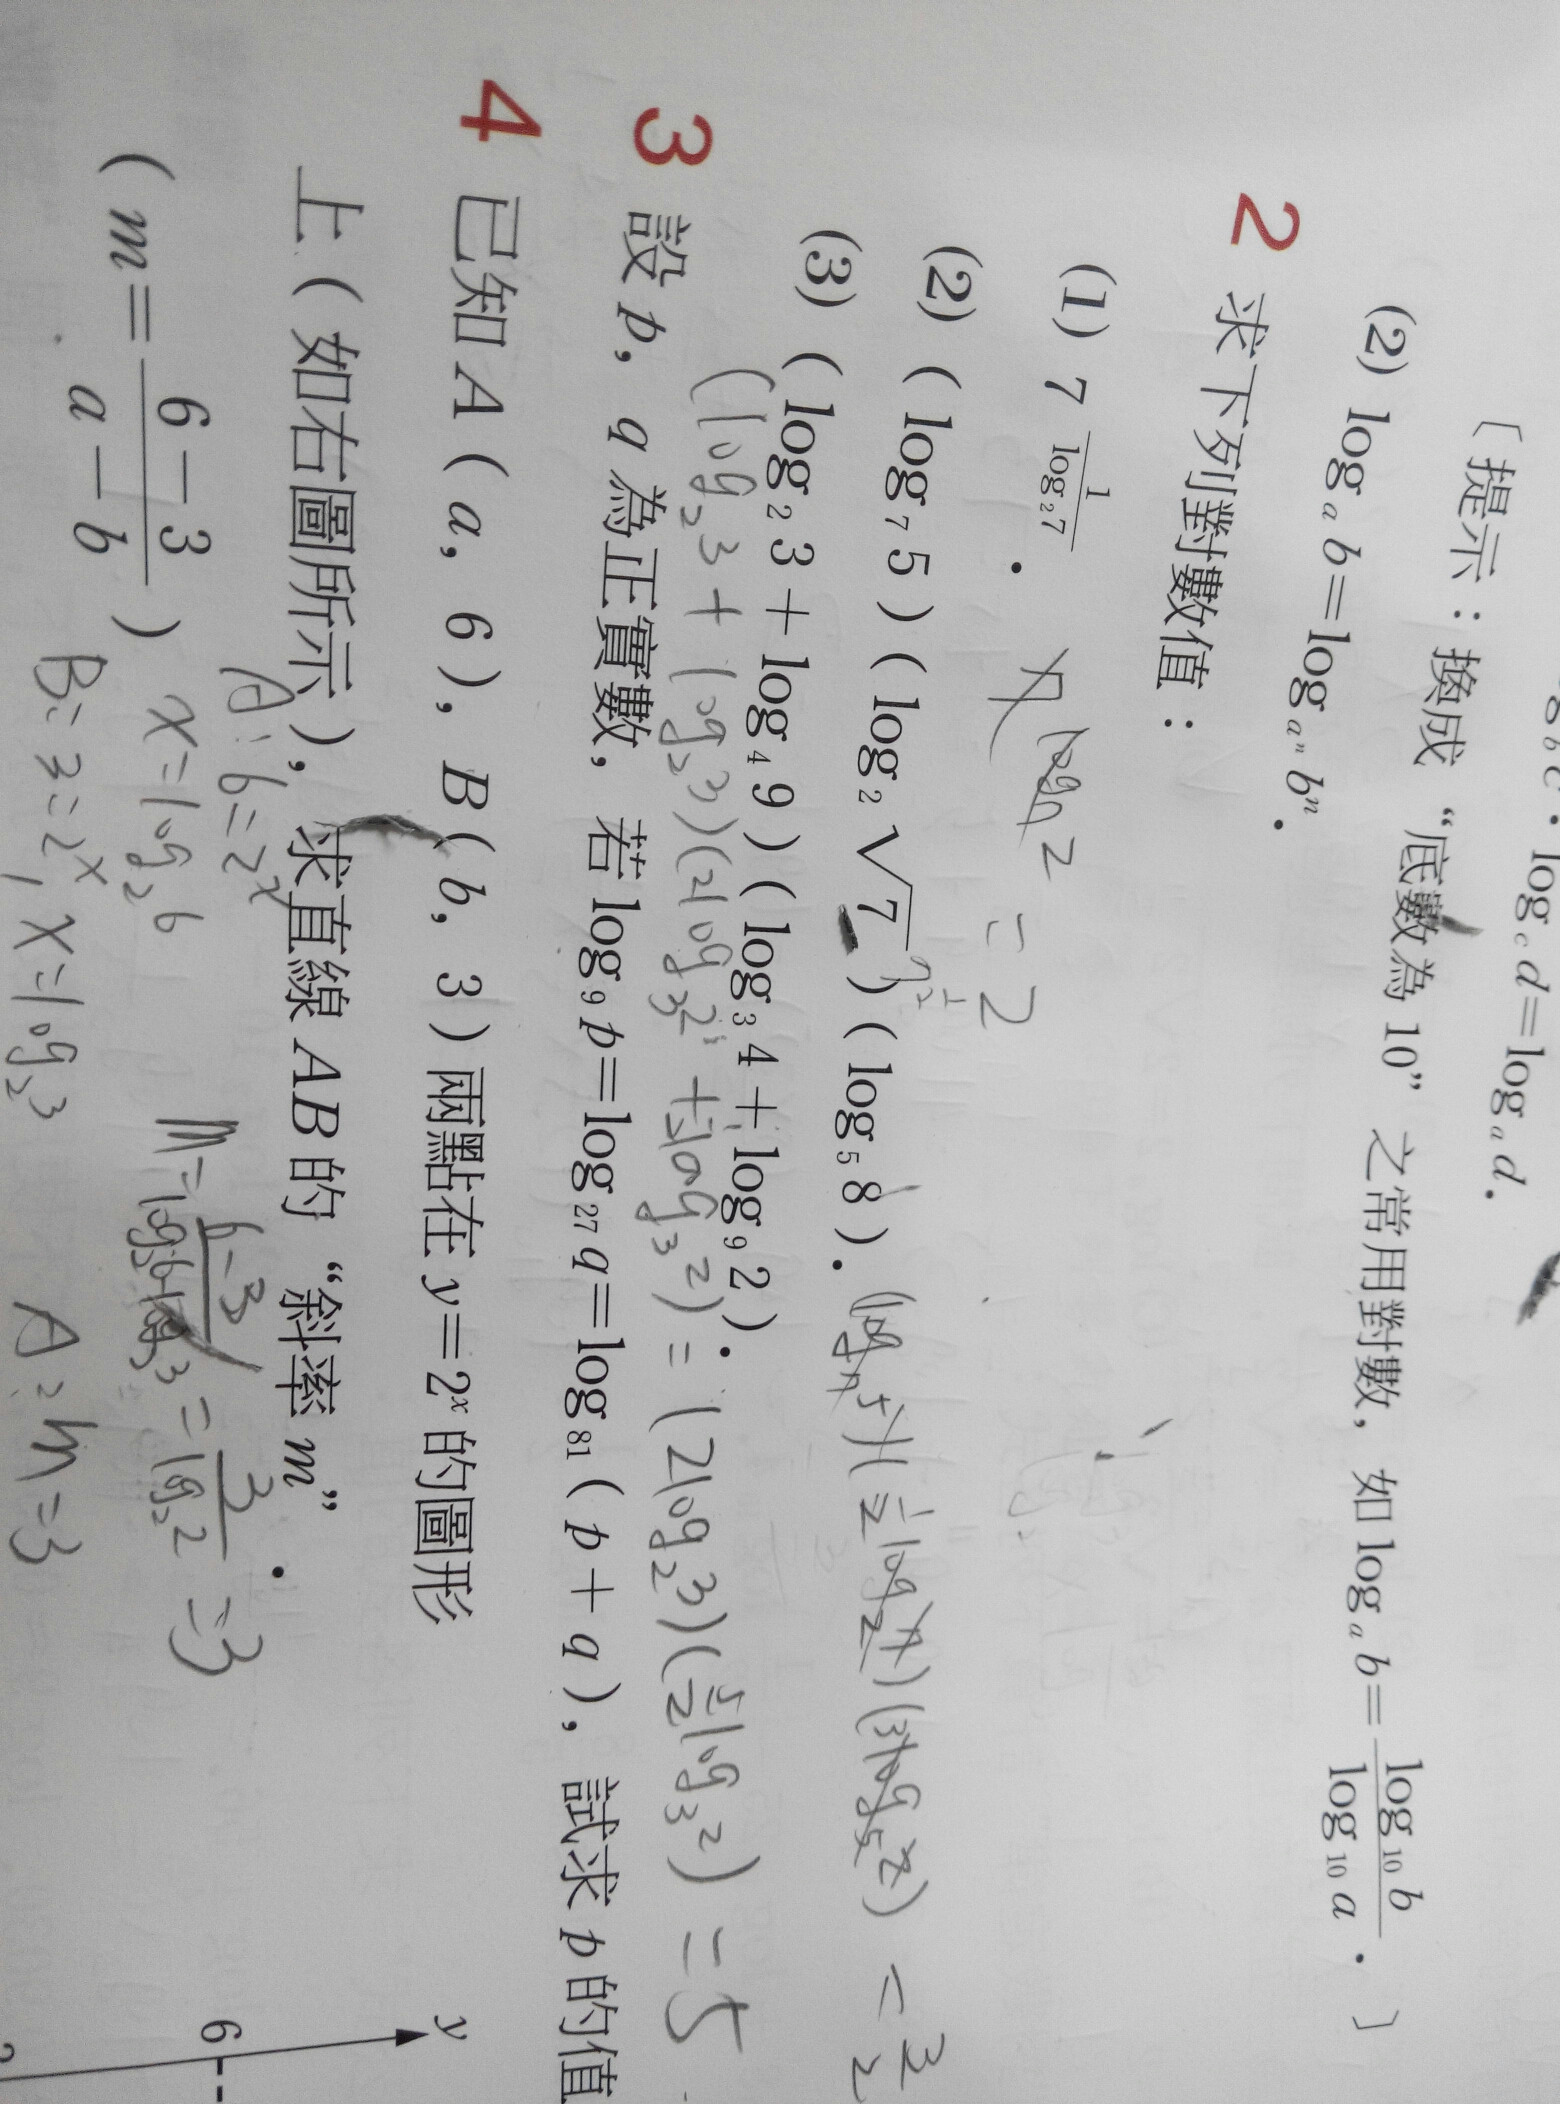 log c d = log a d.
〔提示：換成“底數為 10”之常用對數，如 log a b = log 10 b / log 10 a．〕
(2) log a b = log aⁿ bⁿ．
2 求下列對數值：
(1) 7^(1 / log₂ 7)． 7^(log₇ 2) = 2
(2) (log₇ 5)(log₂ √7)(log₅ 8)． (log₇ 5)(½ log₂ 7)(3 log₅ 2) = 3/2
7^½
(3) (log₂ 3 + log₄ 9)(log₃ 4 + log₉ 2)．
(log₂ 3 + log₂ 3)(2 log₃ 2 + ½ log₃ 2) = (2 log₂ 3)(5/2 log₃ 2) = 5
3 設 p，q 為正實數，若 log₉ p = log₂₇ q = log₈₁ (p + q)，試求 p 的值
4 已知 A(a，6)，B(b，3) 兩點在 y = 2ˣ 的圖形
上（如右圖所示），求直線 AB 的“斜率 m”．
(m = (6 − 3) / (a − b))
A: 6 = 2ˣ
x = log₂ 6
B: 3 = 2ˣ, x = log₂ 3
m = (6 − 3) / (log₂ 6 − log₂ 3) = 3 / log₂ 2 = 3
A: m = 3
y
6